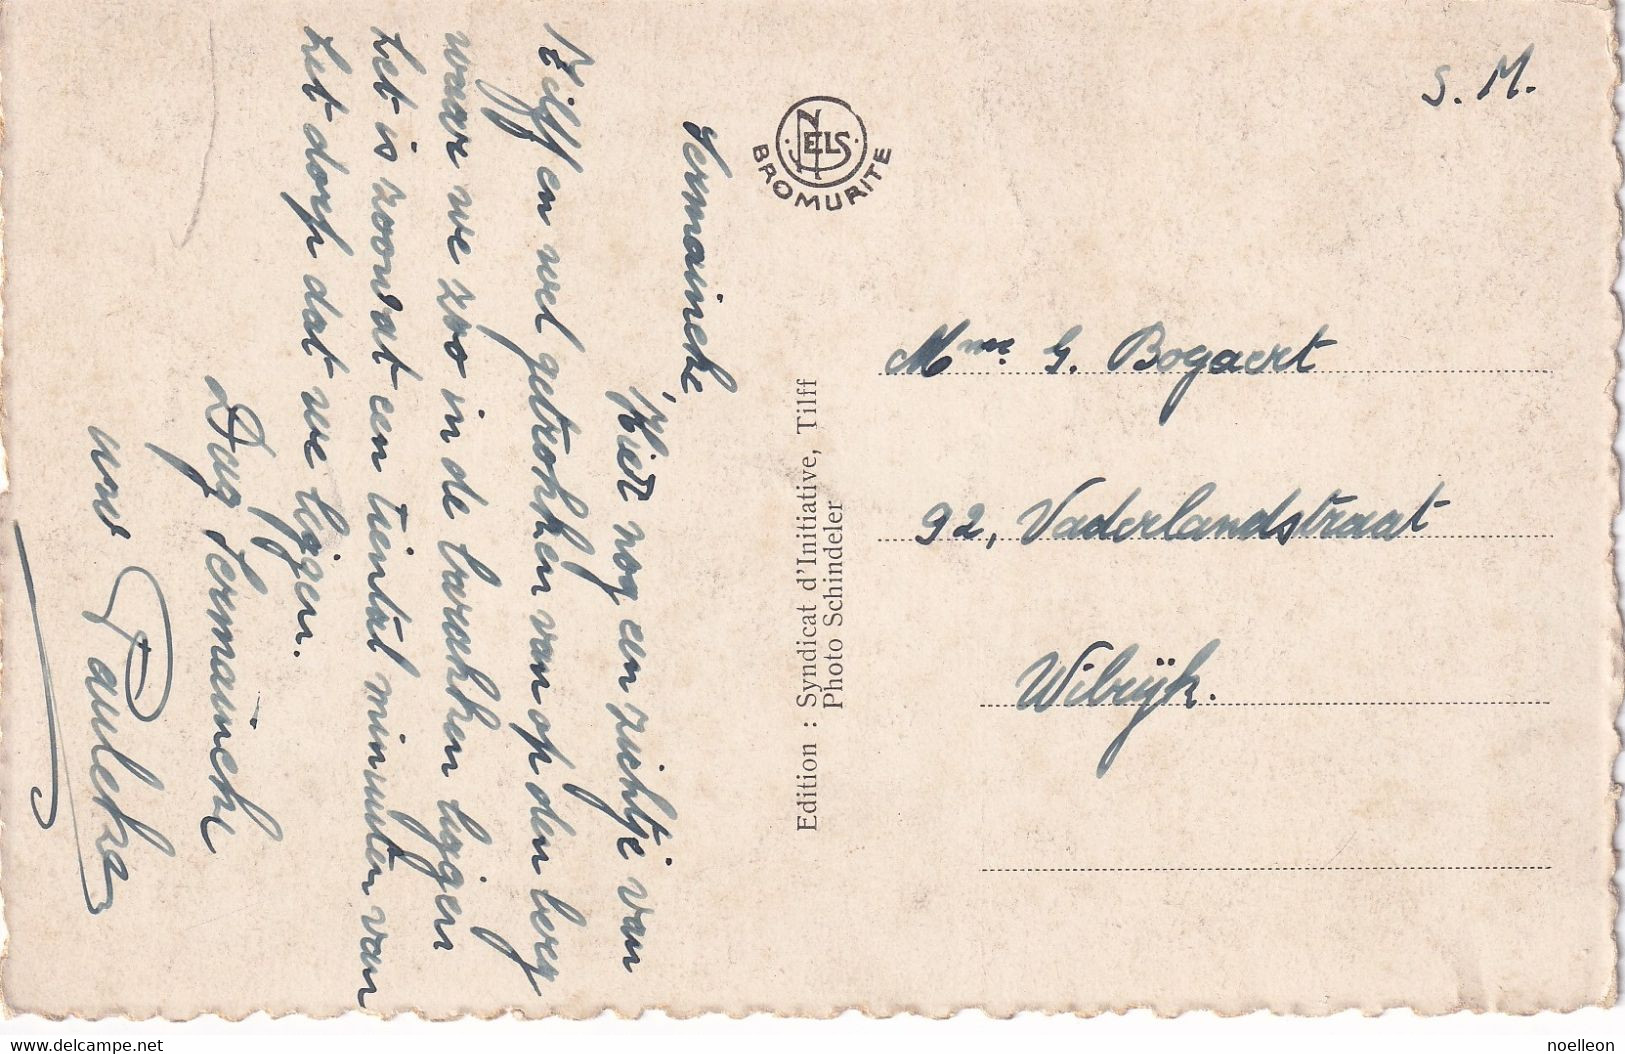 Germaineke,
Hier nog een zichtje van
Tilff en wel getrokken van op den berg
waar we zoo in de barakken liggen
het is zoowat een tiental minuten van
het dorp dat we liggen.
Dag Germaineke
uw Pauleke
NELS
BROMURITE
Edition : Syndicat d'Initiative, Tilff
Photo Schindeler
S. M.
Mme G. Bogaert
92, Vaderlandstraat
Wilrijk.
www.delcampe.net
noelleon